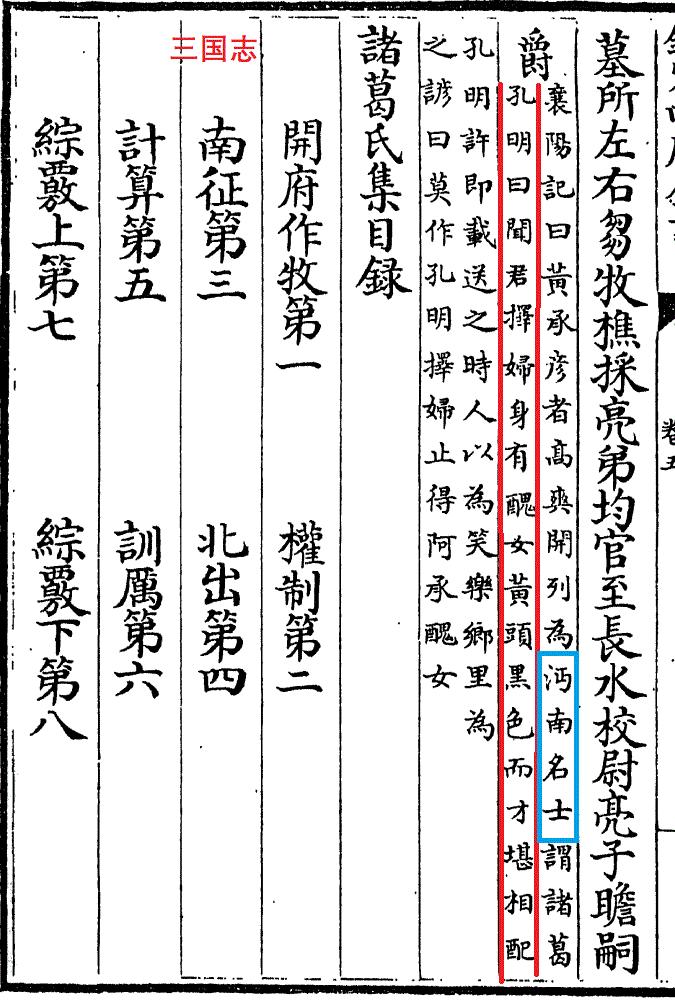 三国志
墓所左右芻牧樵採亮弟均官至長水校尉亮子瞻嗣
爵
襄陽記曰黃承彦者高爽開列為沔南名士謂諸葛
孔明曰聞君擇婦身有醜女黃頭黑色而才堪相配
孔明許即載送之時人以為笑樂鄉里為
之諺曰莫作孔明擇婦止得阿承醜女
諸葛氏集目録
開府作牧第一 權制第二
南征第三 北出第四
計算第五 訓厲第六
綜覈上第七 綜覈下第八